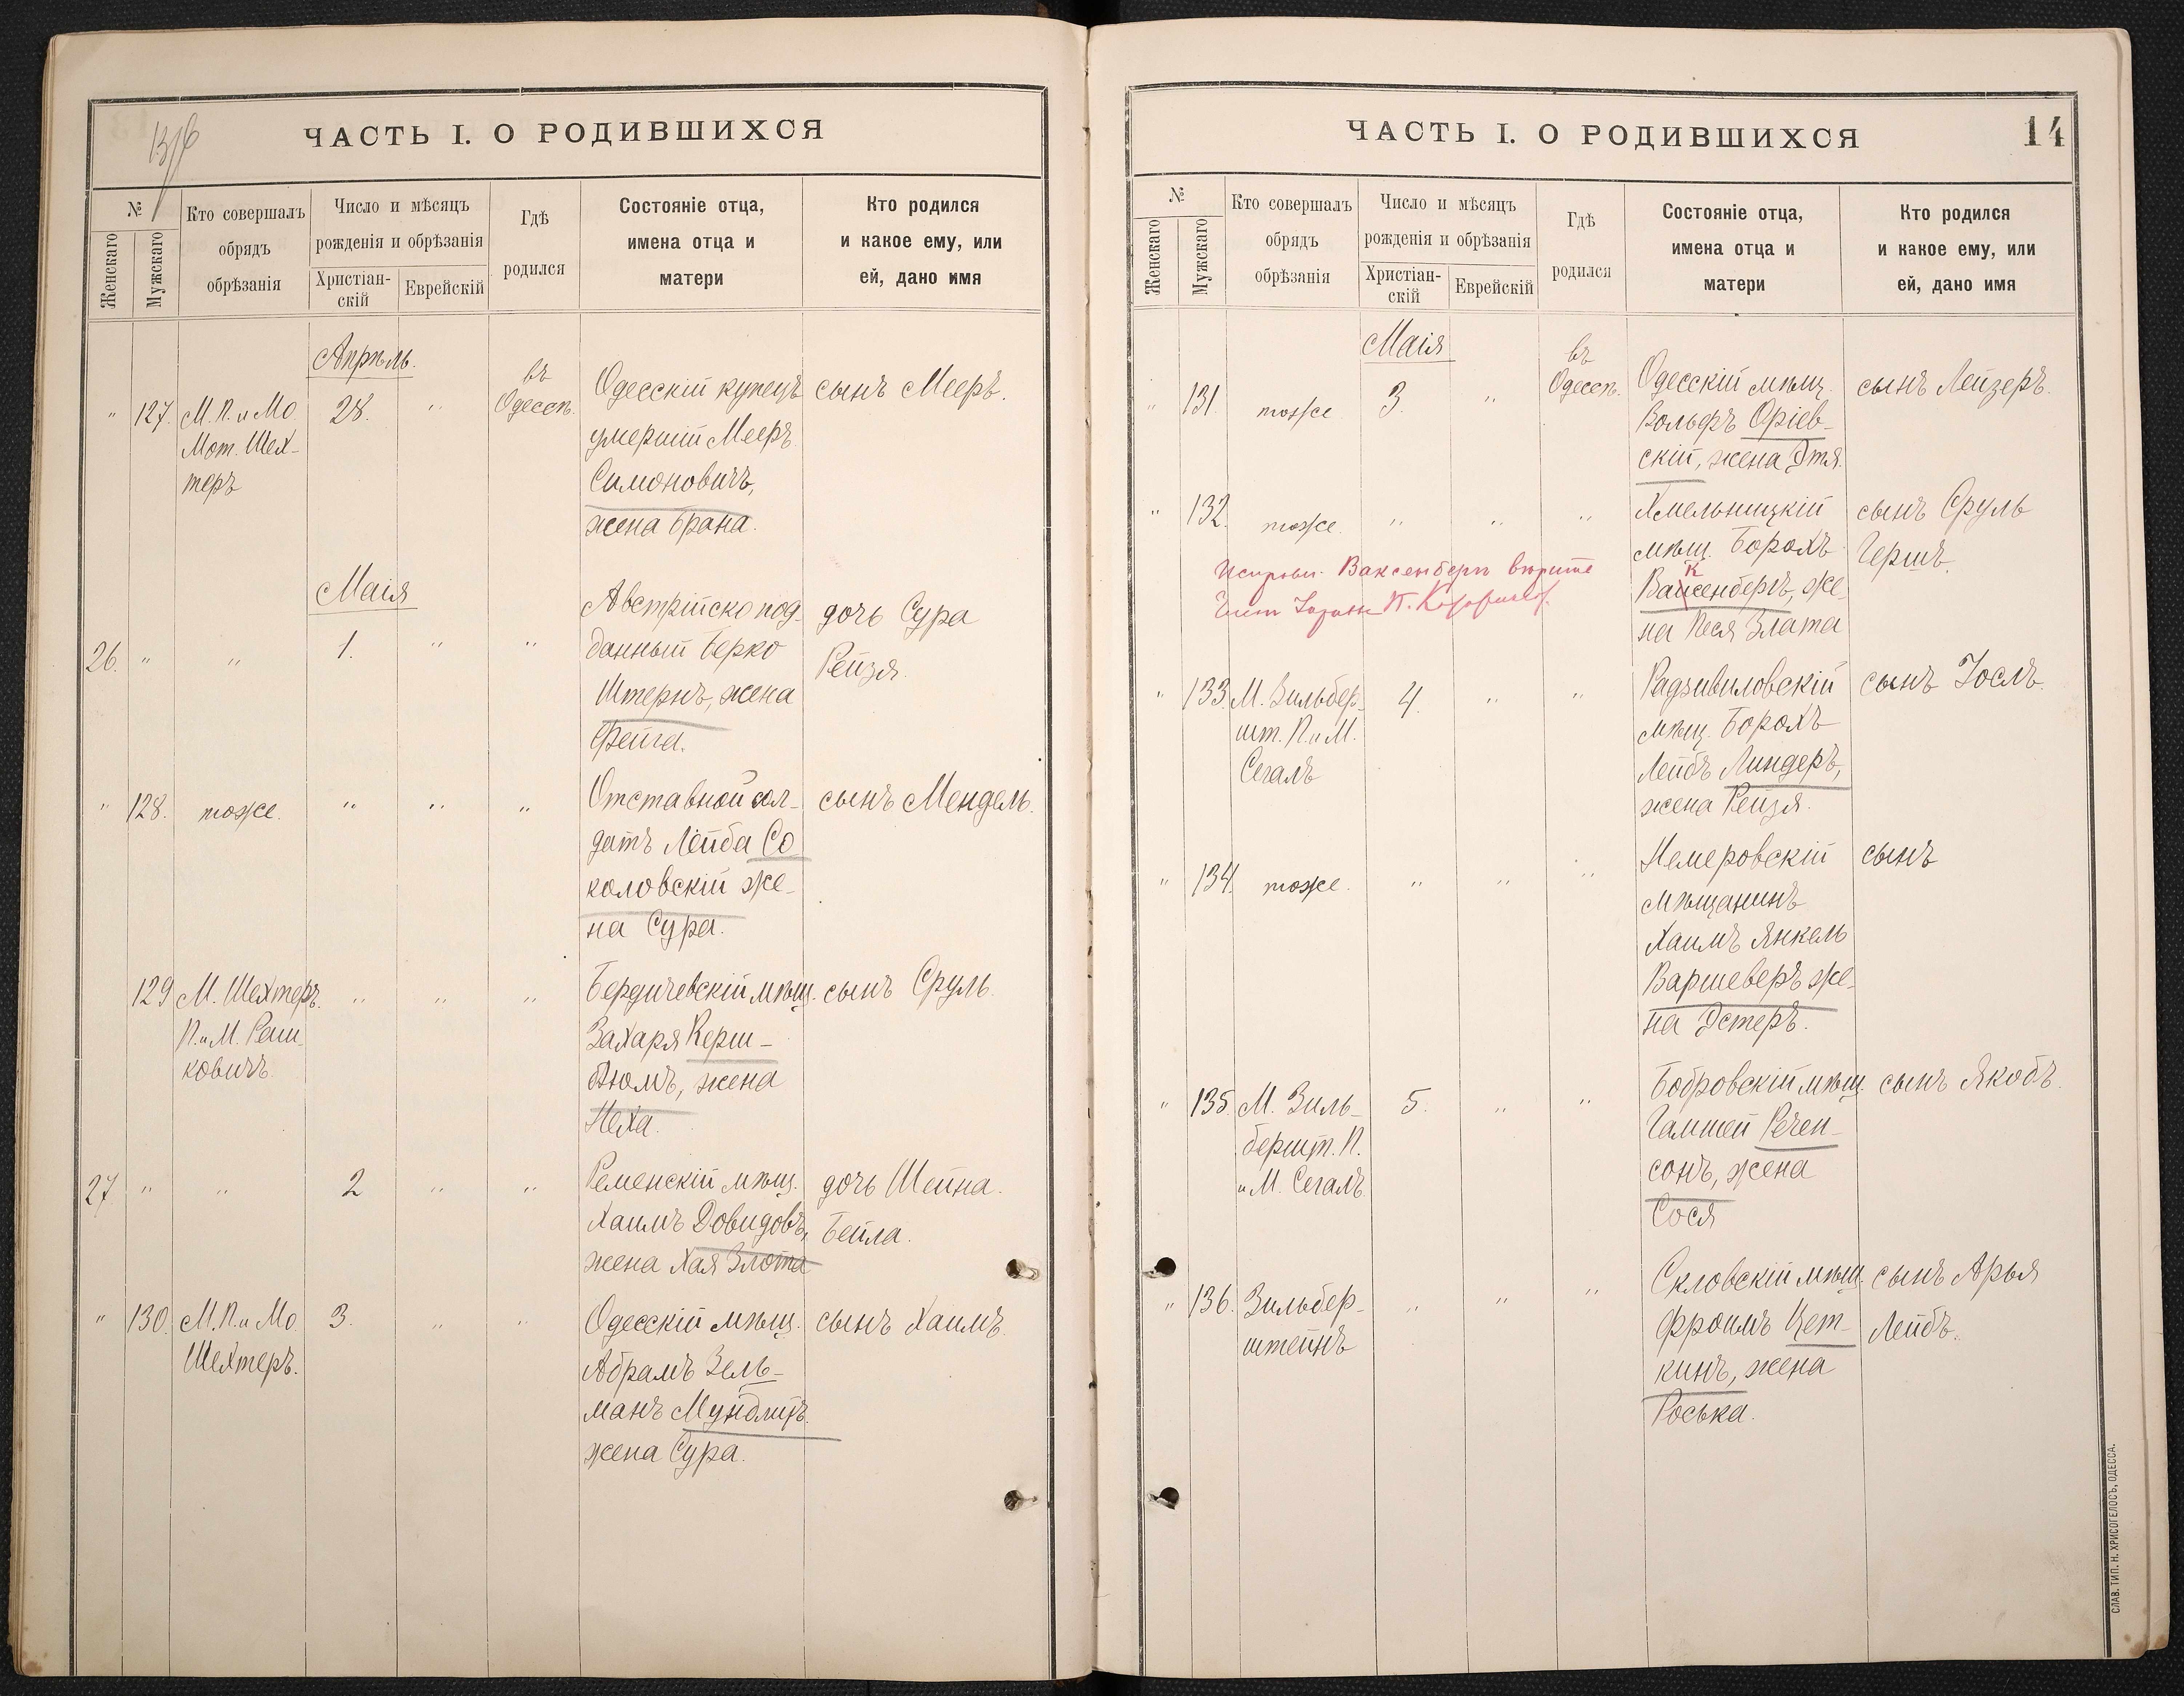 ЧАСТЬ I. О РОДИВШИХСЯ
№
Женскаго
Мужскаго
Кто совершалъ
обрядъ
обрѣзанія
Число и мѣсяцъ
рожденія и обрѣзанія
Христіан-
скій
Еврейскій
Гдѣ
родился
Состояніе отца,
имена отца и
матери
Кто родился
и какое ему, или
ей, дано имя
Апрѣль.
" 127. М. П. и Мо
Мот. Шех-
теръ
28. "
въ
Одессѣ.
Одесскій купецъ
умершій Мееръ
Симоновичъ,
жена Брана.
сынъ Мееръ.
Маія
26. " " 1. " "
Австрійско под-
данный Берко
Штернъ, жена
Фейга.
дочь Сура
Рейзя.
" 128. тоже. " " "
Отставной сол-
датъ Лейба Со
коловскій же-
на Сура.
сынъ Мендель.
129 М. Шехтеръ.
П. и М. Раш-
ковичъ.
" " "
Бердичевскій мѣщ.
Захаря Керш-
блюмъ, жена
Неха.
сынъ Сруль.
27 " " 2 " "
Роменскій мѣщ.
Хаимъ Довидовъ,
жена Хая Злота
дочь Шейна.
Бейла.
" 130. М. П. и Мо
Шехтеръ.
3. " "
Одесскій мѣщ.
Абрамъ Зель-
манъ Мундлитъ.
жена Сура.
сынъ Хаимъ.
ЧАСТЬ I. О РОДИВШИХСЯ
14
№
Женскаго
Мужскаго
Кто совершалъ
обрядъ
обрѣзанія
Число и мѣсяцъ
рожденія и обрѣзанія
Христіан-
скій
Еврейскій
Гдѣ
родился
Состояніе отца,
имена отца и
матери
Кто родился
и какое ему, или
ей, дано имя
Маія
" 131. тоже. 3. "
въ
Одессѣ.
Одесскій мѣщ.
Вольфъ Оріев-
скій, жена Этя.
сынъ Лейзеръ.
" 132. тоже. " " "
Хмельницкій
мѣщ. Борохъ
Ваксенберъ, же-
на Песя Злата
сынъ Сруль
Гершъ.
Исправл. Ваксенбергъ вѣрить
" 133. М. Зильбер-
шт. П. и М.
Сегалъ
4. " "
Радзивиловскій
мѣщ. Борохъ
Лейбъ Линдеръ,
жена Рейзя.
сынъ Іосль.
" 134. тоже. " " "
Немеровскій
мѣщанинъ
Хаимъ Янкель
Варшеверъ же-
на Эстеръ.
сынъ
" 135. М. Зиль-
бершт. П.
и М. Сегалъ.
5. " "
Бобровскій мѣщ.
Гамшей Речен-
сонъ, жена
Сося
сынъ Якобъ.
" 136. Зильбер-
штейнъ
" " "
Скловскій мѣщ.
Фроимъ Цет-
кинъ, жена
Роська.
сынъ Арья
Лейбъ.
СЛАВ. ТИП. Н. ХРИСОГЕЛОСЪ, ОДЕССА.